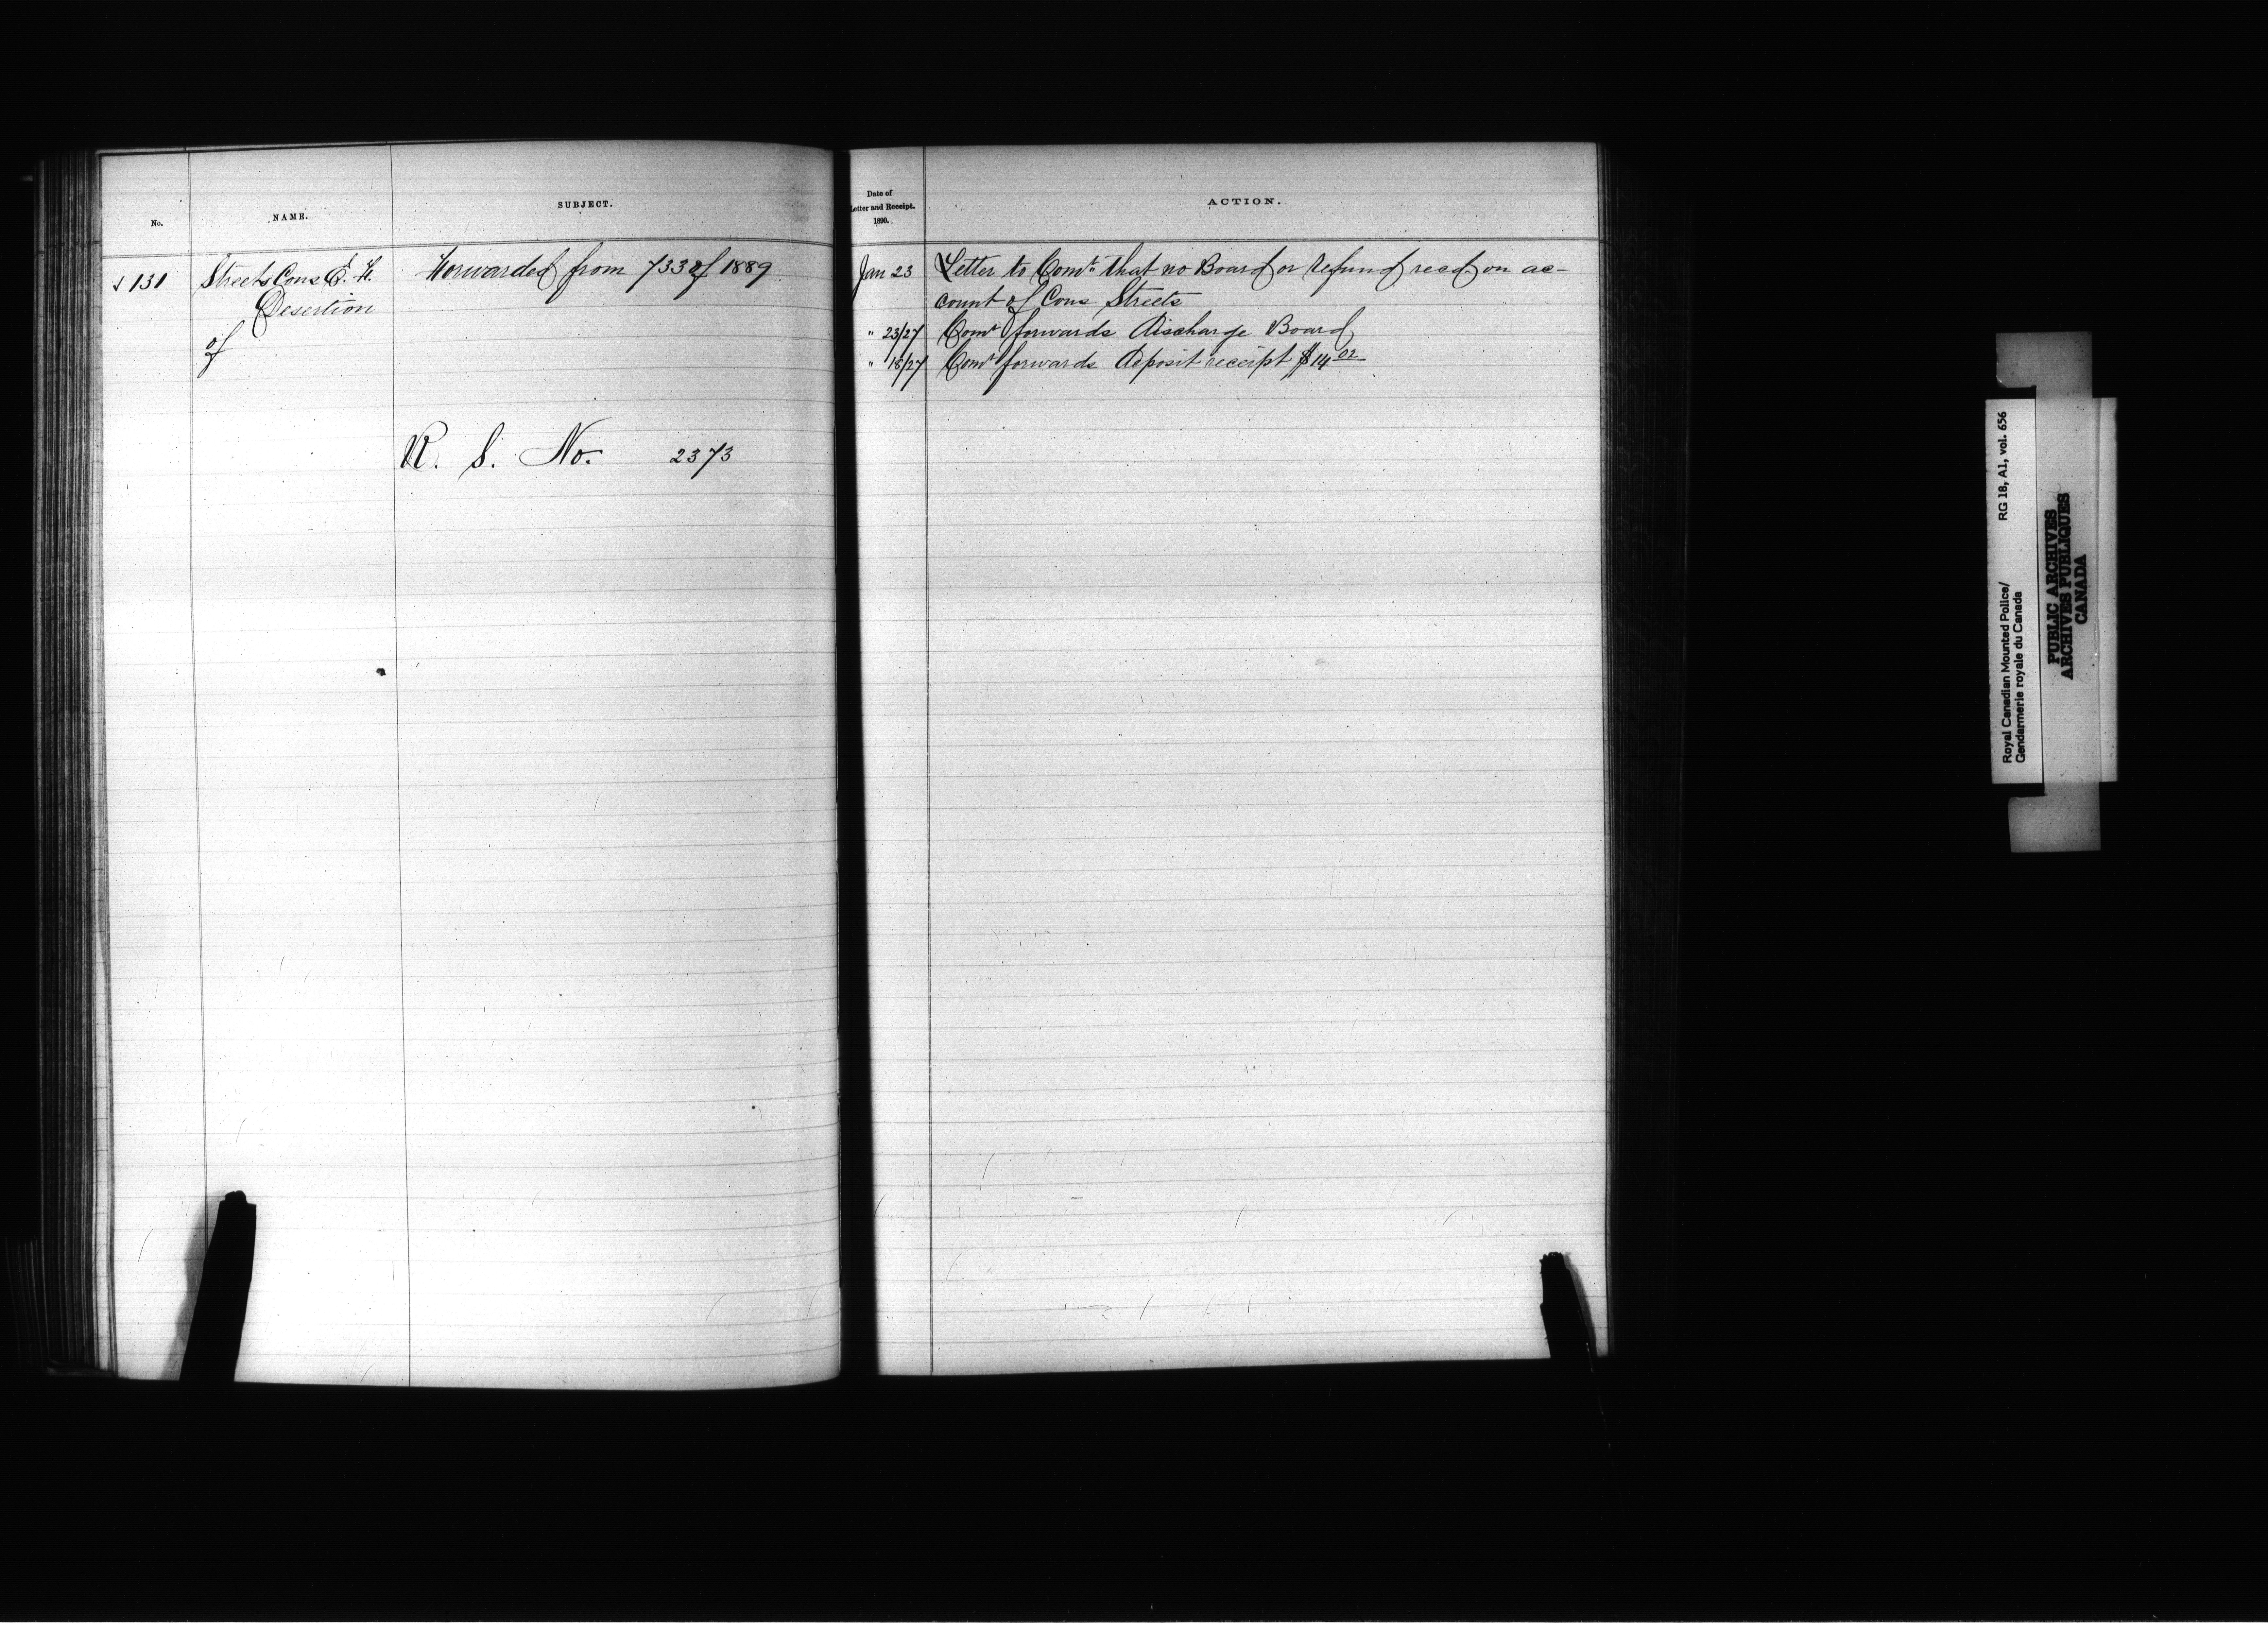 No.
NAME.
SUBJECT.
131
Streets Cons E. H.
Desertion
of
Forwarded from 733 of 1889
R. S. No. 2373
Date of
Letter and Receipt.
1890.
ACTION.
Jan 23 Letter to Comr. that no Board or Refund recd. on ac-
count of Cons Streets
" 23/27 Comr forwards Discharge Board
" 18/27 Comr forwards deposit receipt $14 02
Royal Canadian Mounted Police/ RG 18, A1, vol. 656
Gendarmerie royale du Canada
PUBLIC ARCHIVES
ARCHIVES PUBLIQUES
CANADA